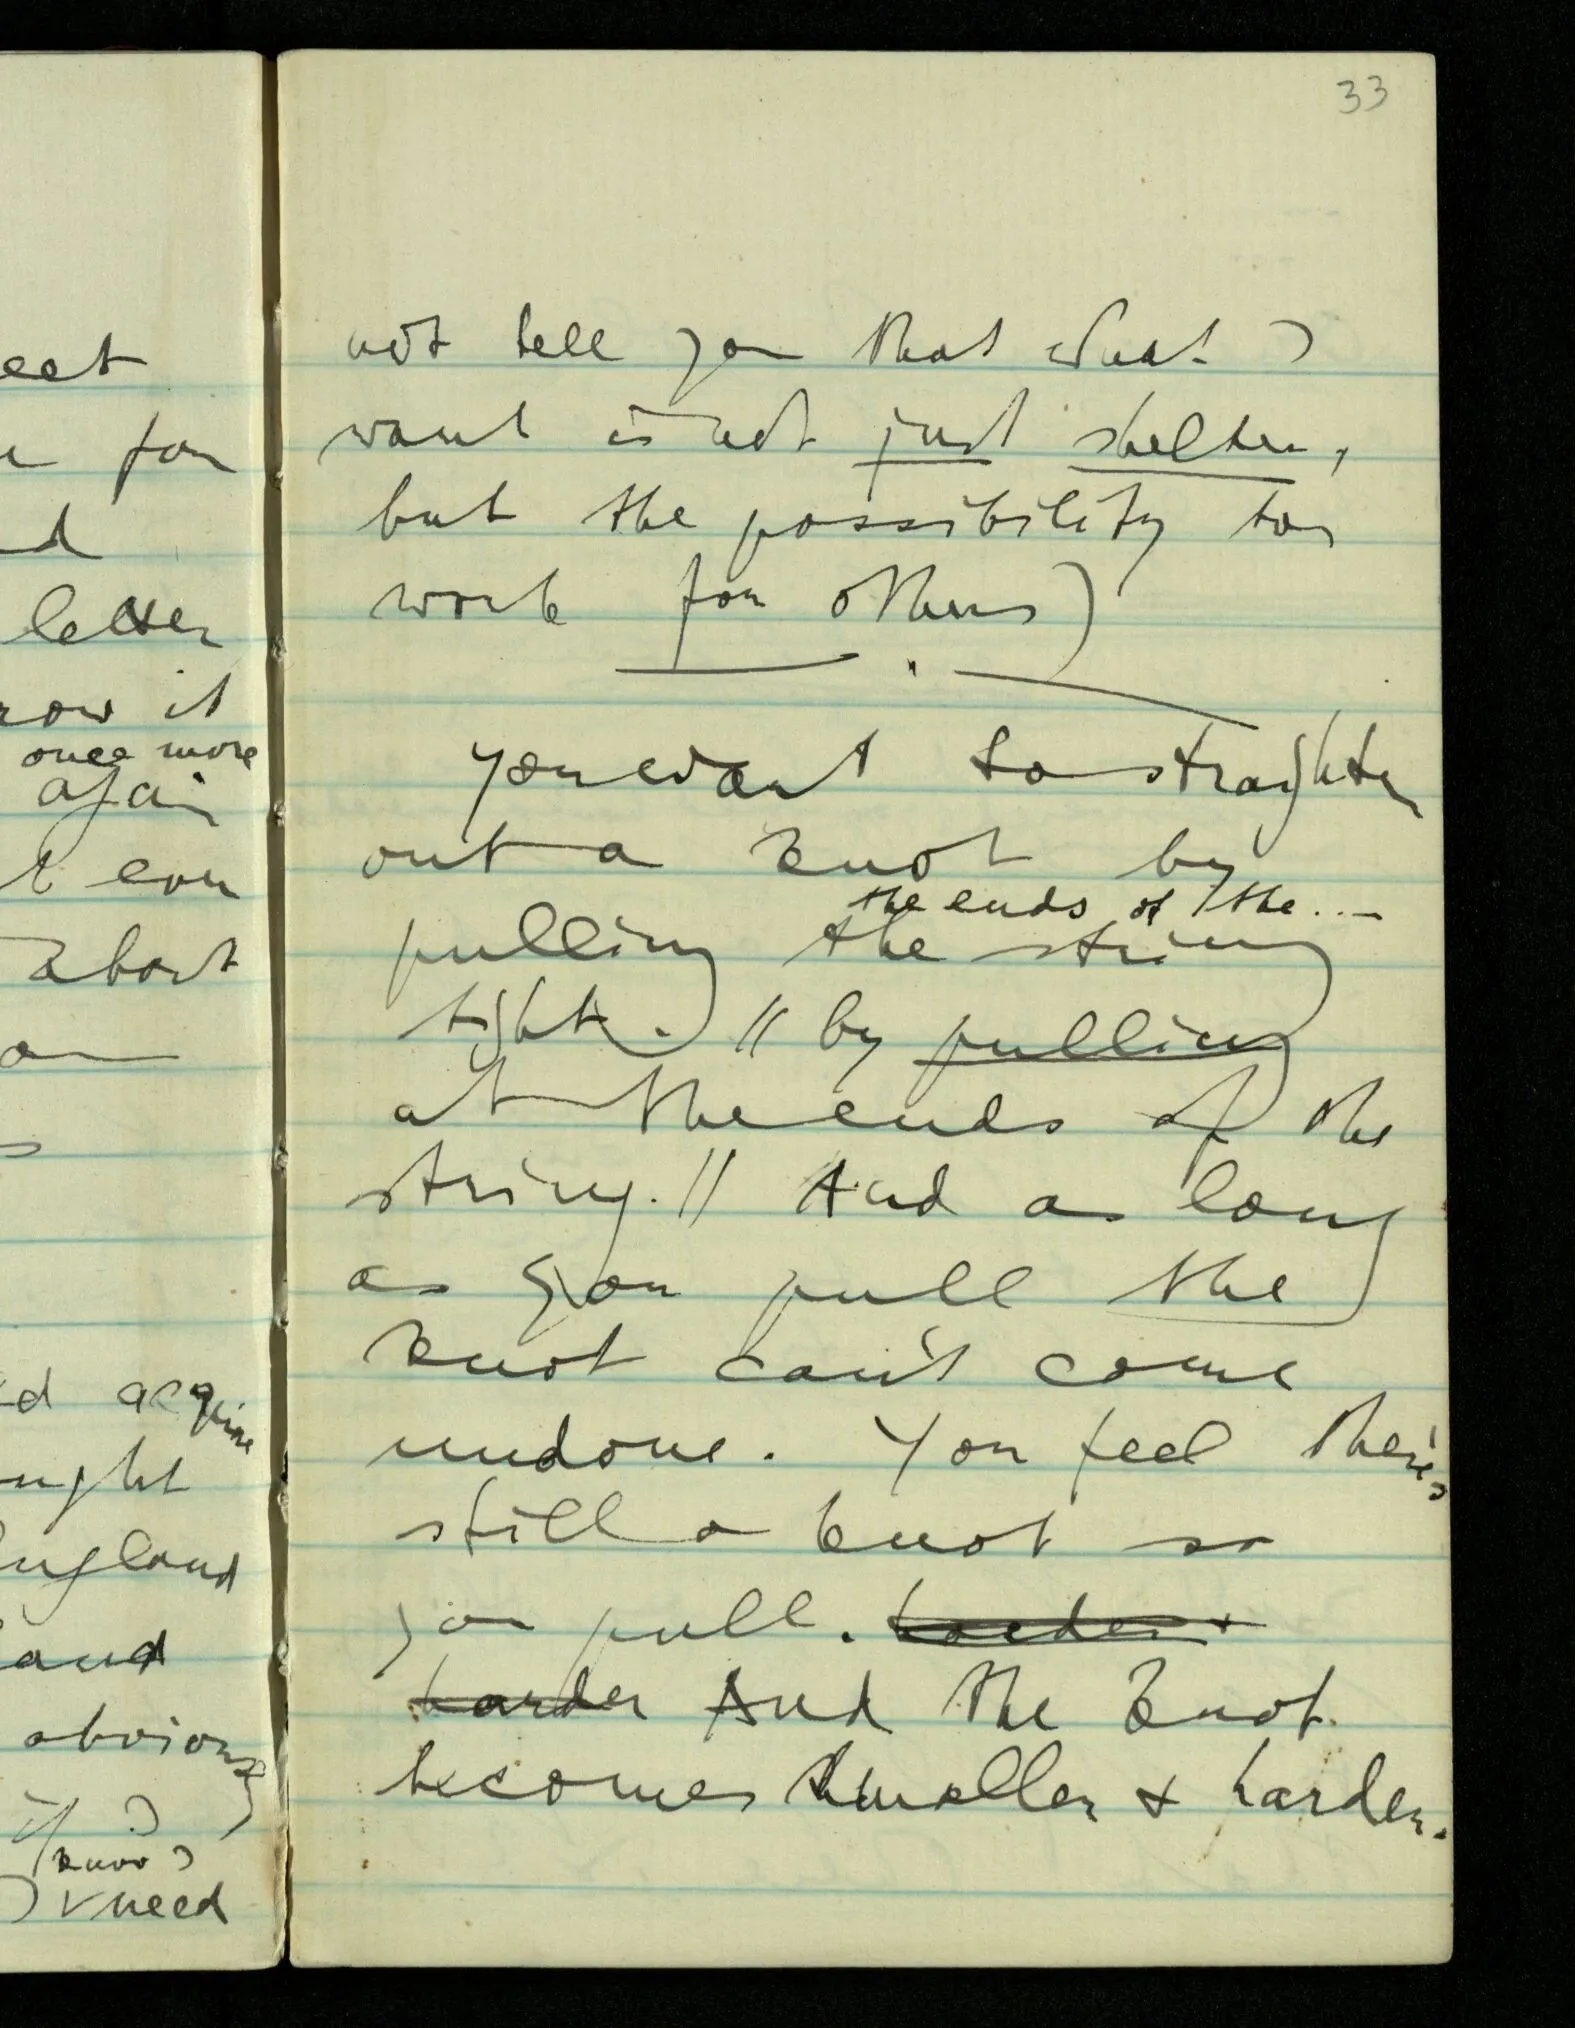 eet
for
d
letter
row it
once more
again
t even
about
ed acquire
ought
England
and
obvious
if I
know I
I need
33
not tell you that what I
want is not just shelter,
but the possibility to
work for others)
You want to straighten
out a knot by
the ends of the ...
pulling the string
tight. // by pulling
at the ends of the
string. // And as long
as you pull the
knot can't come
undone. You feel there's
still a knot so
you pull. harder &
harder And the knot
becomes smaller & harder.